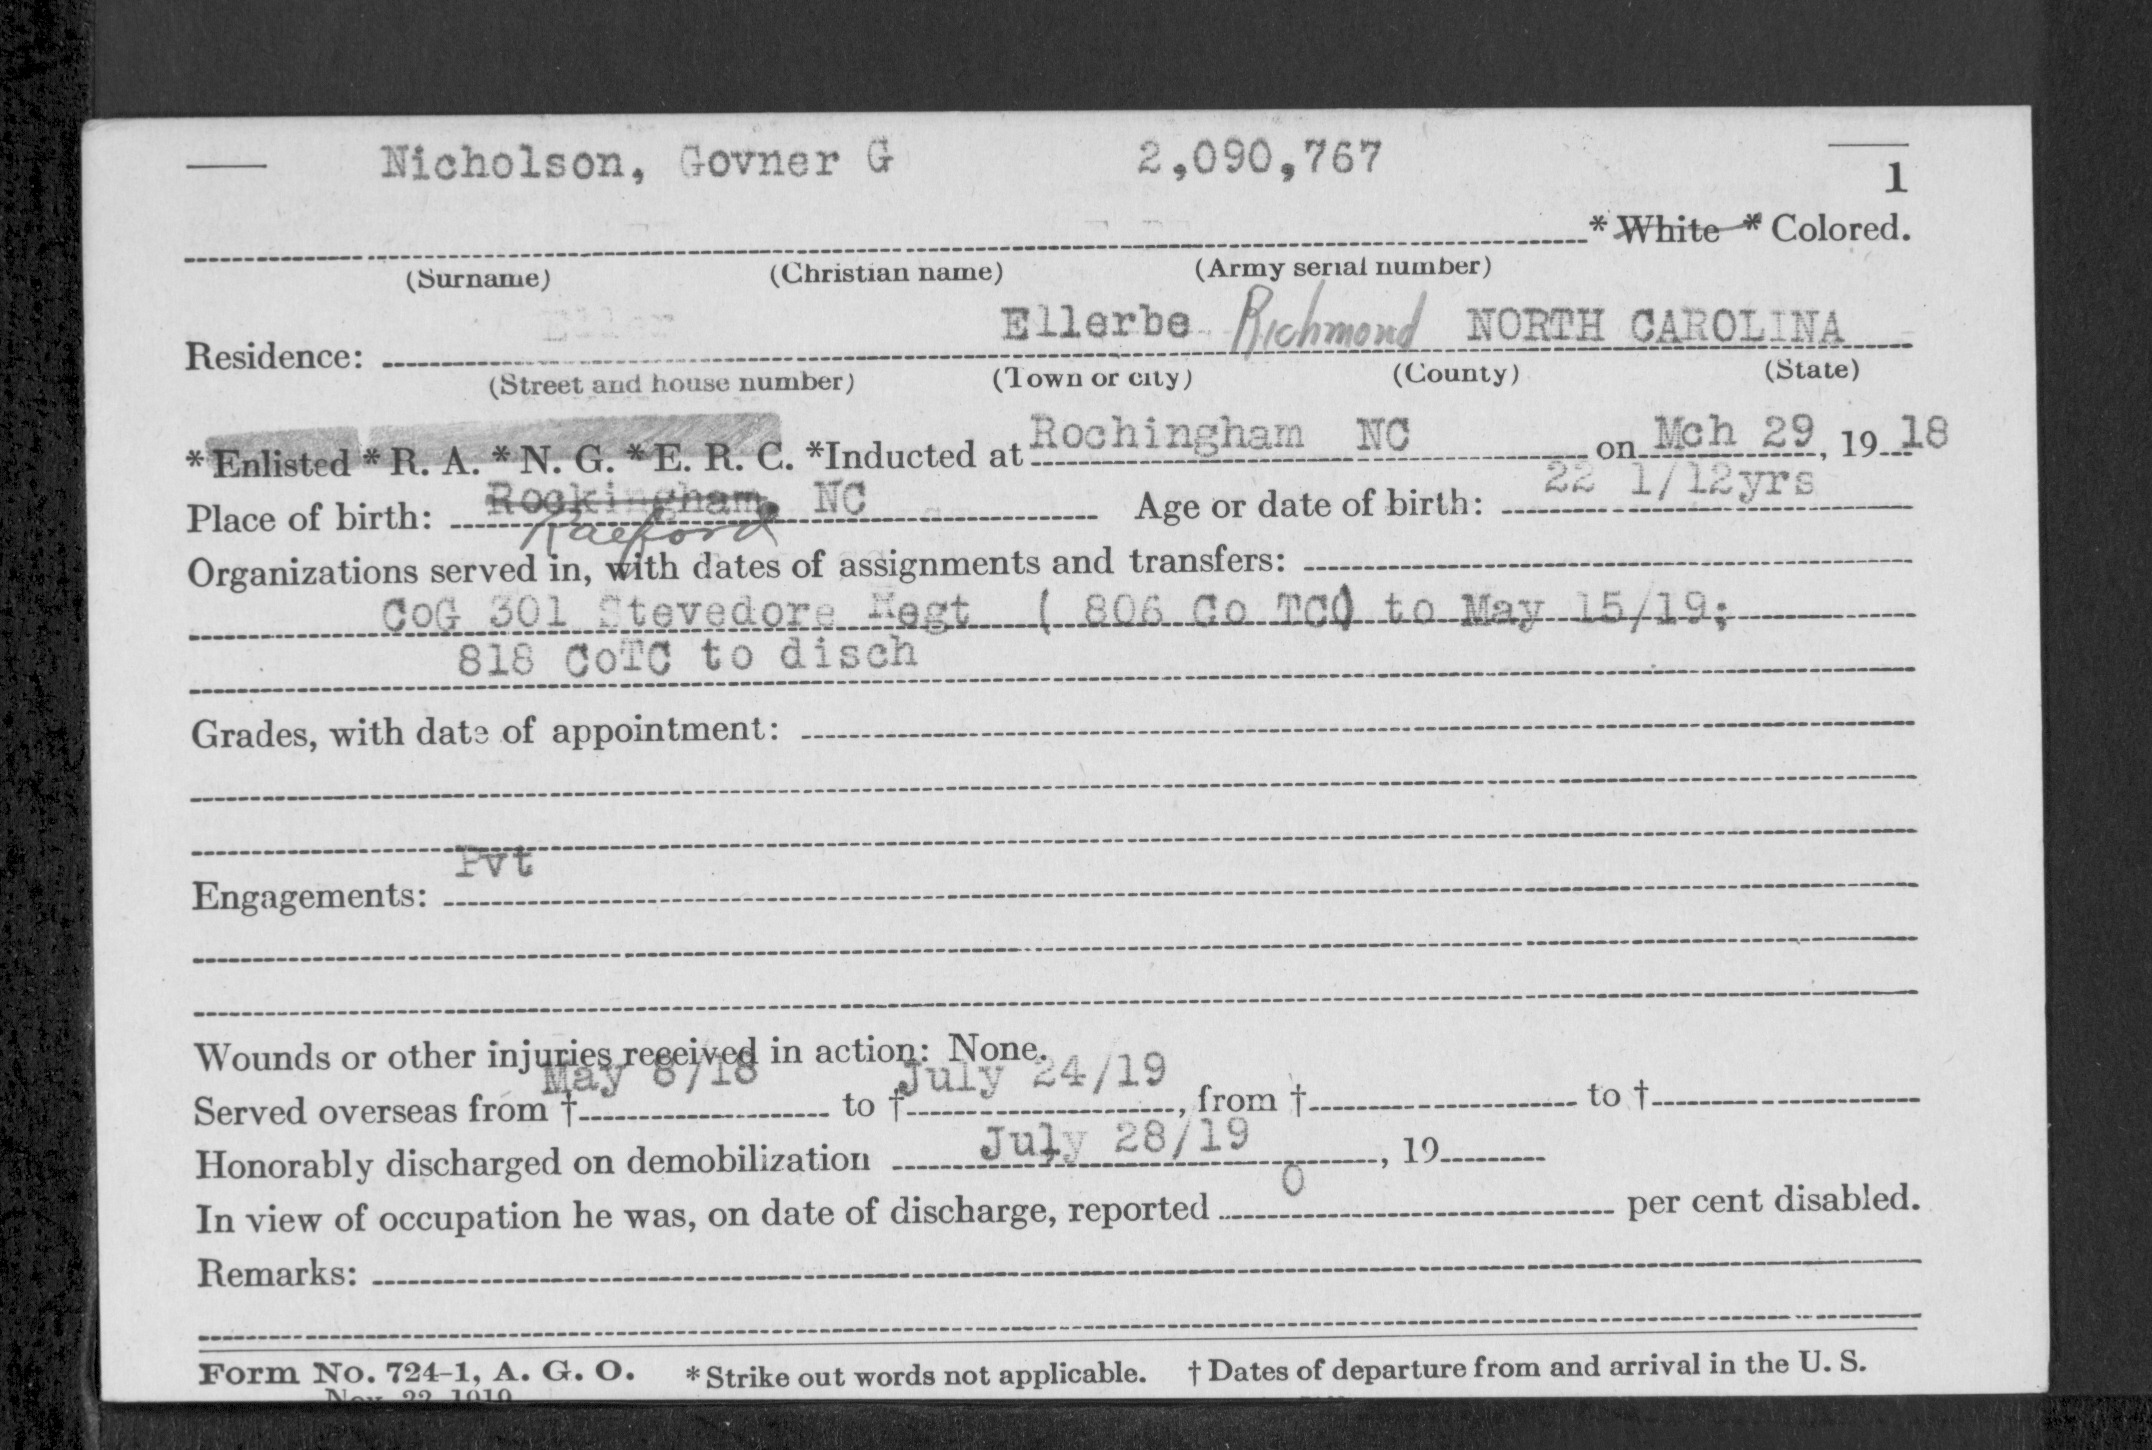 Nicholson, Govner G 2,090,767 1
* White * Colored.
(Surname) (Christian name) (Army serial number)
Residence: Ellerbe Richmond NORTH CAROLINA
(Street and house number) (Town or city) (County) (State)
*Enlisted *R. A. *N. G. *E. R. C. *Inducted at Rochingham NC on Mch 29, 19 18
Place of birth: Rockingham, NC Age or date of birth: 22 1/12yrs
Raeford
Organizations served in, with dates of assignments and transfers:
CoG 301 Stevedore Regt ( 806 Co TC) to May 15/19;
818 CoTC to disch
Grades, with date of appointment:
Pvt
Engagements:
Wounds or other injuries received in action: None.
Served overseas from † May 8/18 to † July 24/19, from † to †
Honorably discharged on demobilization July 28/19, 19
In view of occupation he was, on date of discharge, reported 0 per cent disabled.
Remarks:
Form No. 724-1, A. G. O. *Strike out words not applicable. † Dates of departure from and arrival in the U. S.
Nov. 22, 1919